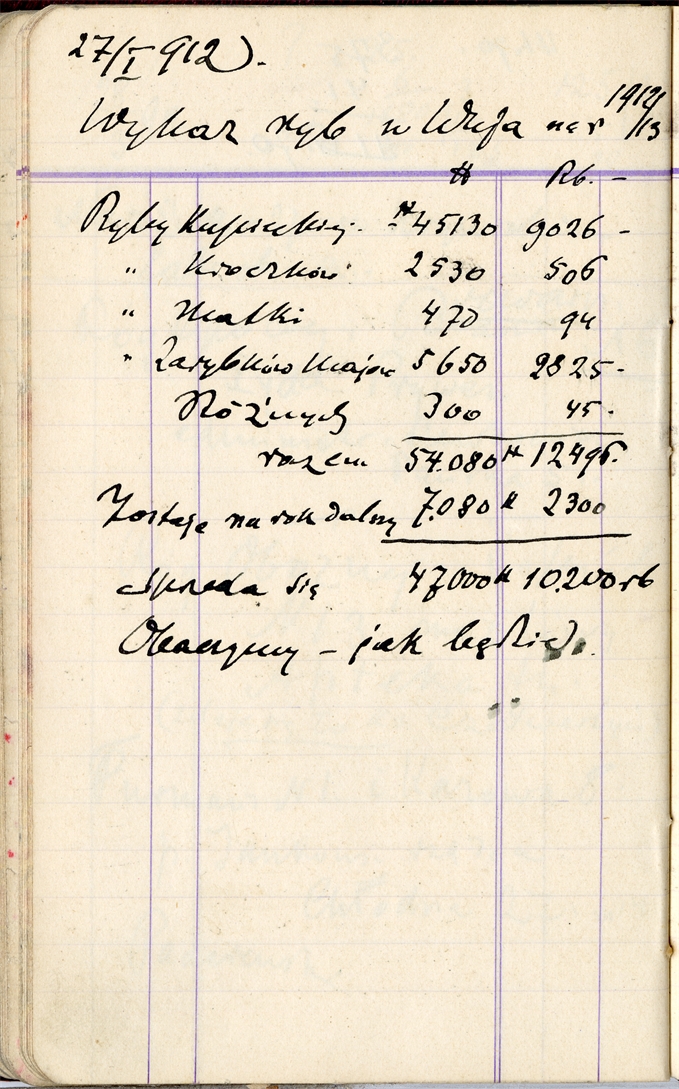 27/I 912).
Wykaz ryb w Wója na r 1912/13
℔ Rb. -
Ryby Kupieckiej. ℔ 45130 9026 -
" Kroczków 2530 506
" Matki 470 94
" Zarybków 5650 2825 -
Różnych 300 45.
razem 54.080 ℔ 12496.
Zostaje na rok dalszy 7.080 ℔ 2300
Sprzeda się 47000 ℔ 10.200 rb
Obaczymy - jak będzie).